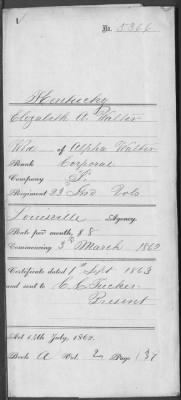 No. 5366
Kentucky
Elizabeth A. Walter
Wid. of Alpha Walter
Rank Corporal
Company G.
Regiment 23 Ind Vols
Louisville Agency.
Rate per month, $8
Commencing 3rd March 1862
Certificate dated 1st Sept 1863
and sent to C. C. Tucker
Present
Act 14th July, 1862.
Book A Vol. 2 Page 131